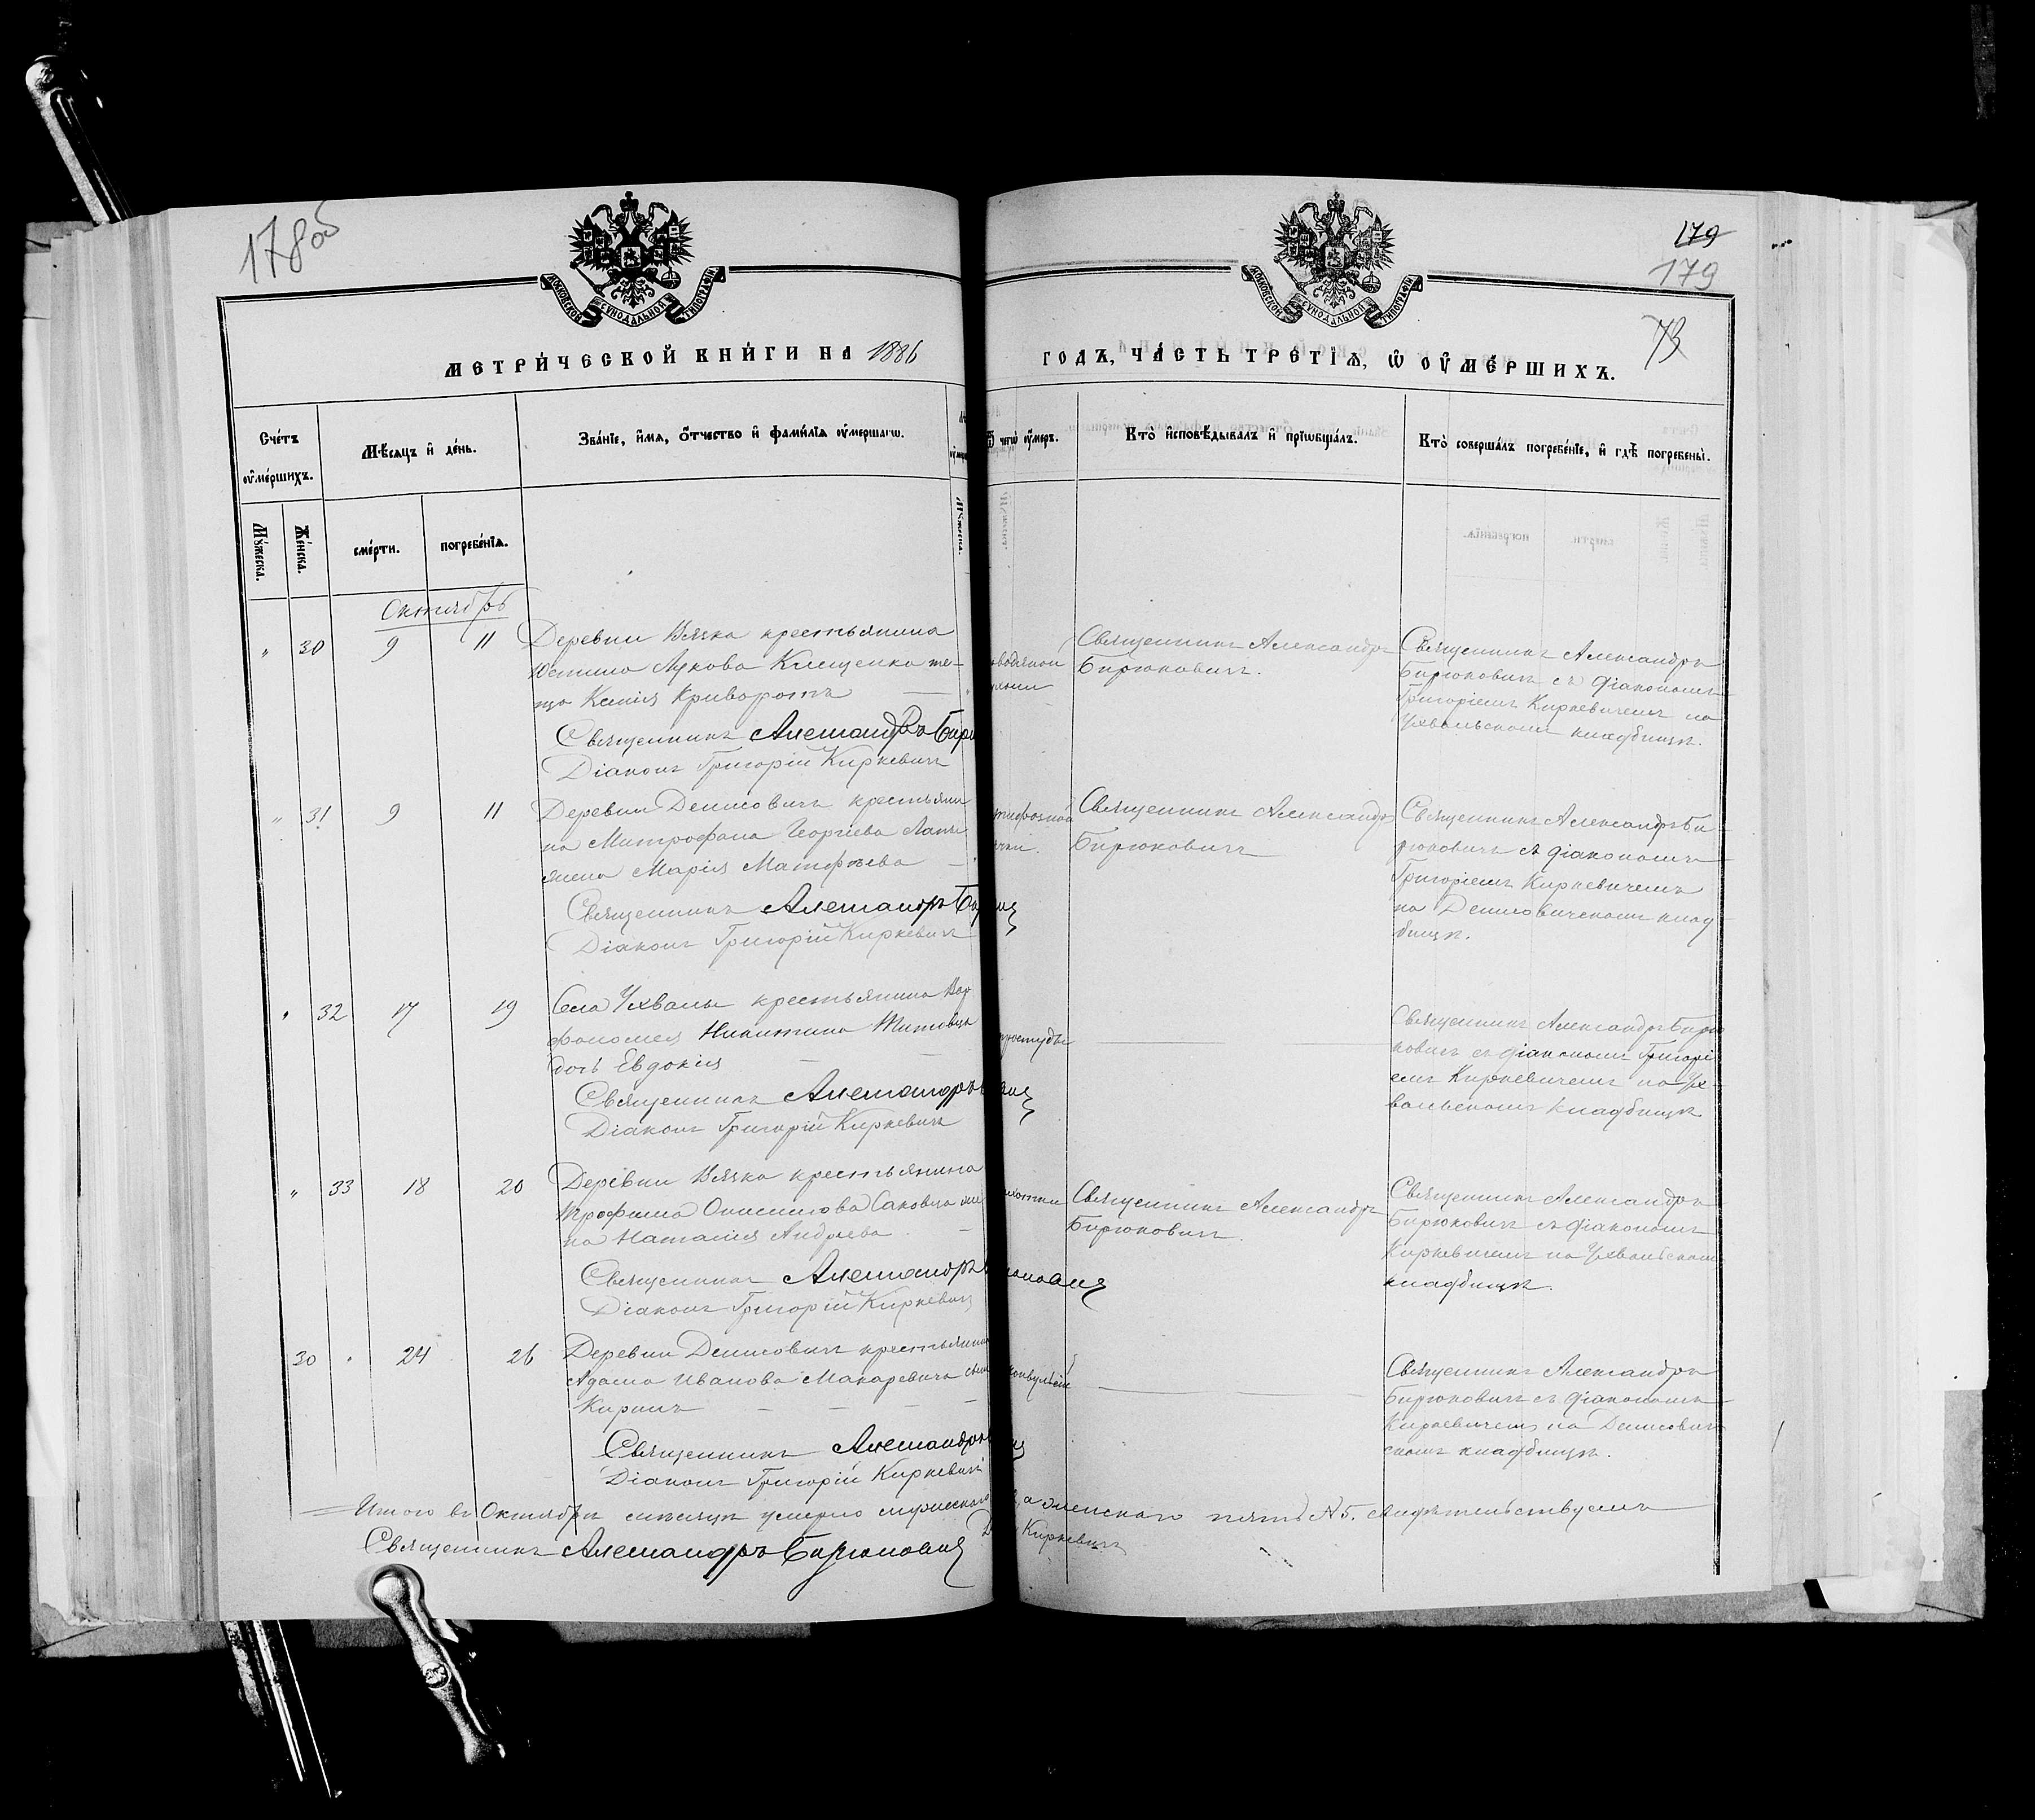 178 об
179
179
73
МОСКОВСКОЙ СѴНОДАЛЬНОЙ ТИПОГРАФІИ
МОСКОВСКОЙ СѴНОДАЛЬНОЙ ТИПОГРАФІИ
МЕТРИ́ЧЕСКОЙ КНИ́ГИ НА 1886
ГОДЪ, ЧА́СТЬ ТРЕТІѦ, Ѿ ОУМЕ́РШИХЪ.
Сче́тъ оумершихъ.
Мѣсяцъ и день.
Званіе, имя, отчество и фамилія оумершагѡ.
Ѿ чегѡ оумеръ.
Кто исповѣдывалъ и пріѡбщалъ.
Кто совершалъ погребеніе, и гдѣ погребены.
Мужеска.
Женска.
смерти.
погребенія.
Мужеска.
Октябрь
" 30 9 11 Деревни Вячка крестьянина
Устина Лукова Клещенка те-
ща Ксенія Криворотъ
Священникъ Александръ Бирю
Діаконъ Григорій Киркевичъ
водяной
Священникъ Александръ
Бирюковичъ.
Священникъ Александръ
Бирюковичъ съ діакономъ
Григоріемъ Киркевичемъ на
Ухвальскомъ кладбищѣ.
" 31 9 11 Деревни Денисовичъ крестьяни
на Митрофана Георгіева
жена Марія Матфѣева
Священникъ Александръ
Діаконъ Григорій Киркевичъ
тифозной
ячки.
Священникъ Александръ
Бирюковичъ
Священникъ Александръ Би-
рюковичъ съ діакономъ
Григоріемъ Киркевичемъ
на Денисовичскомъ клад-
бищѣ.
" 32 17 19 Села Ухвалы крестьянина Вар
фоломея Никитина Титовца
дочь Евдокія
Священникъ Александръ
Діаконъ Григорій Киркевичъ
простуды
Священникъ Александръ Бирю
ковичъ съ діакономъ Григорі
емъ Киркевичемъ на Ух-
вальскомъ кладбищѣ
" 33 18 20 Деревни Вячка крестьянина
Трофима Онисимова Саковича же
на Наталія Андреева
Священникъ Александръ
Діаконъ Григорій Киркевичъ
Священникъ Александръ
Бирюковичъ.
Священникъ Александръ
Бирюковичъ съ діакономъ
Киркевичемъ на Ухвальскомъ
кладбищѣ.
30 " 24 26 Деревни Денисовичъ крестьянина
Адама Иванова Макаревича сынъ
Кириллъ
Священникъ Александръ
Діаконъ Григорій Киркевичъ
конвульсіи
Священникъ Александръ
Бирюковичъ съ діакономъ
Киркевичемъ на Денисович
скомъ кладбищѣ.
Итого въ Октябрѣ мѣсяцѣ умерло мужескаго а женскаго пять №5. Свидѣтельствуемъ
Священникъ Александръ Бирюковичъ
Киркевичъ